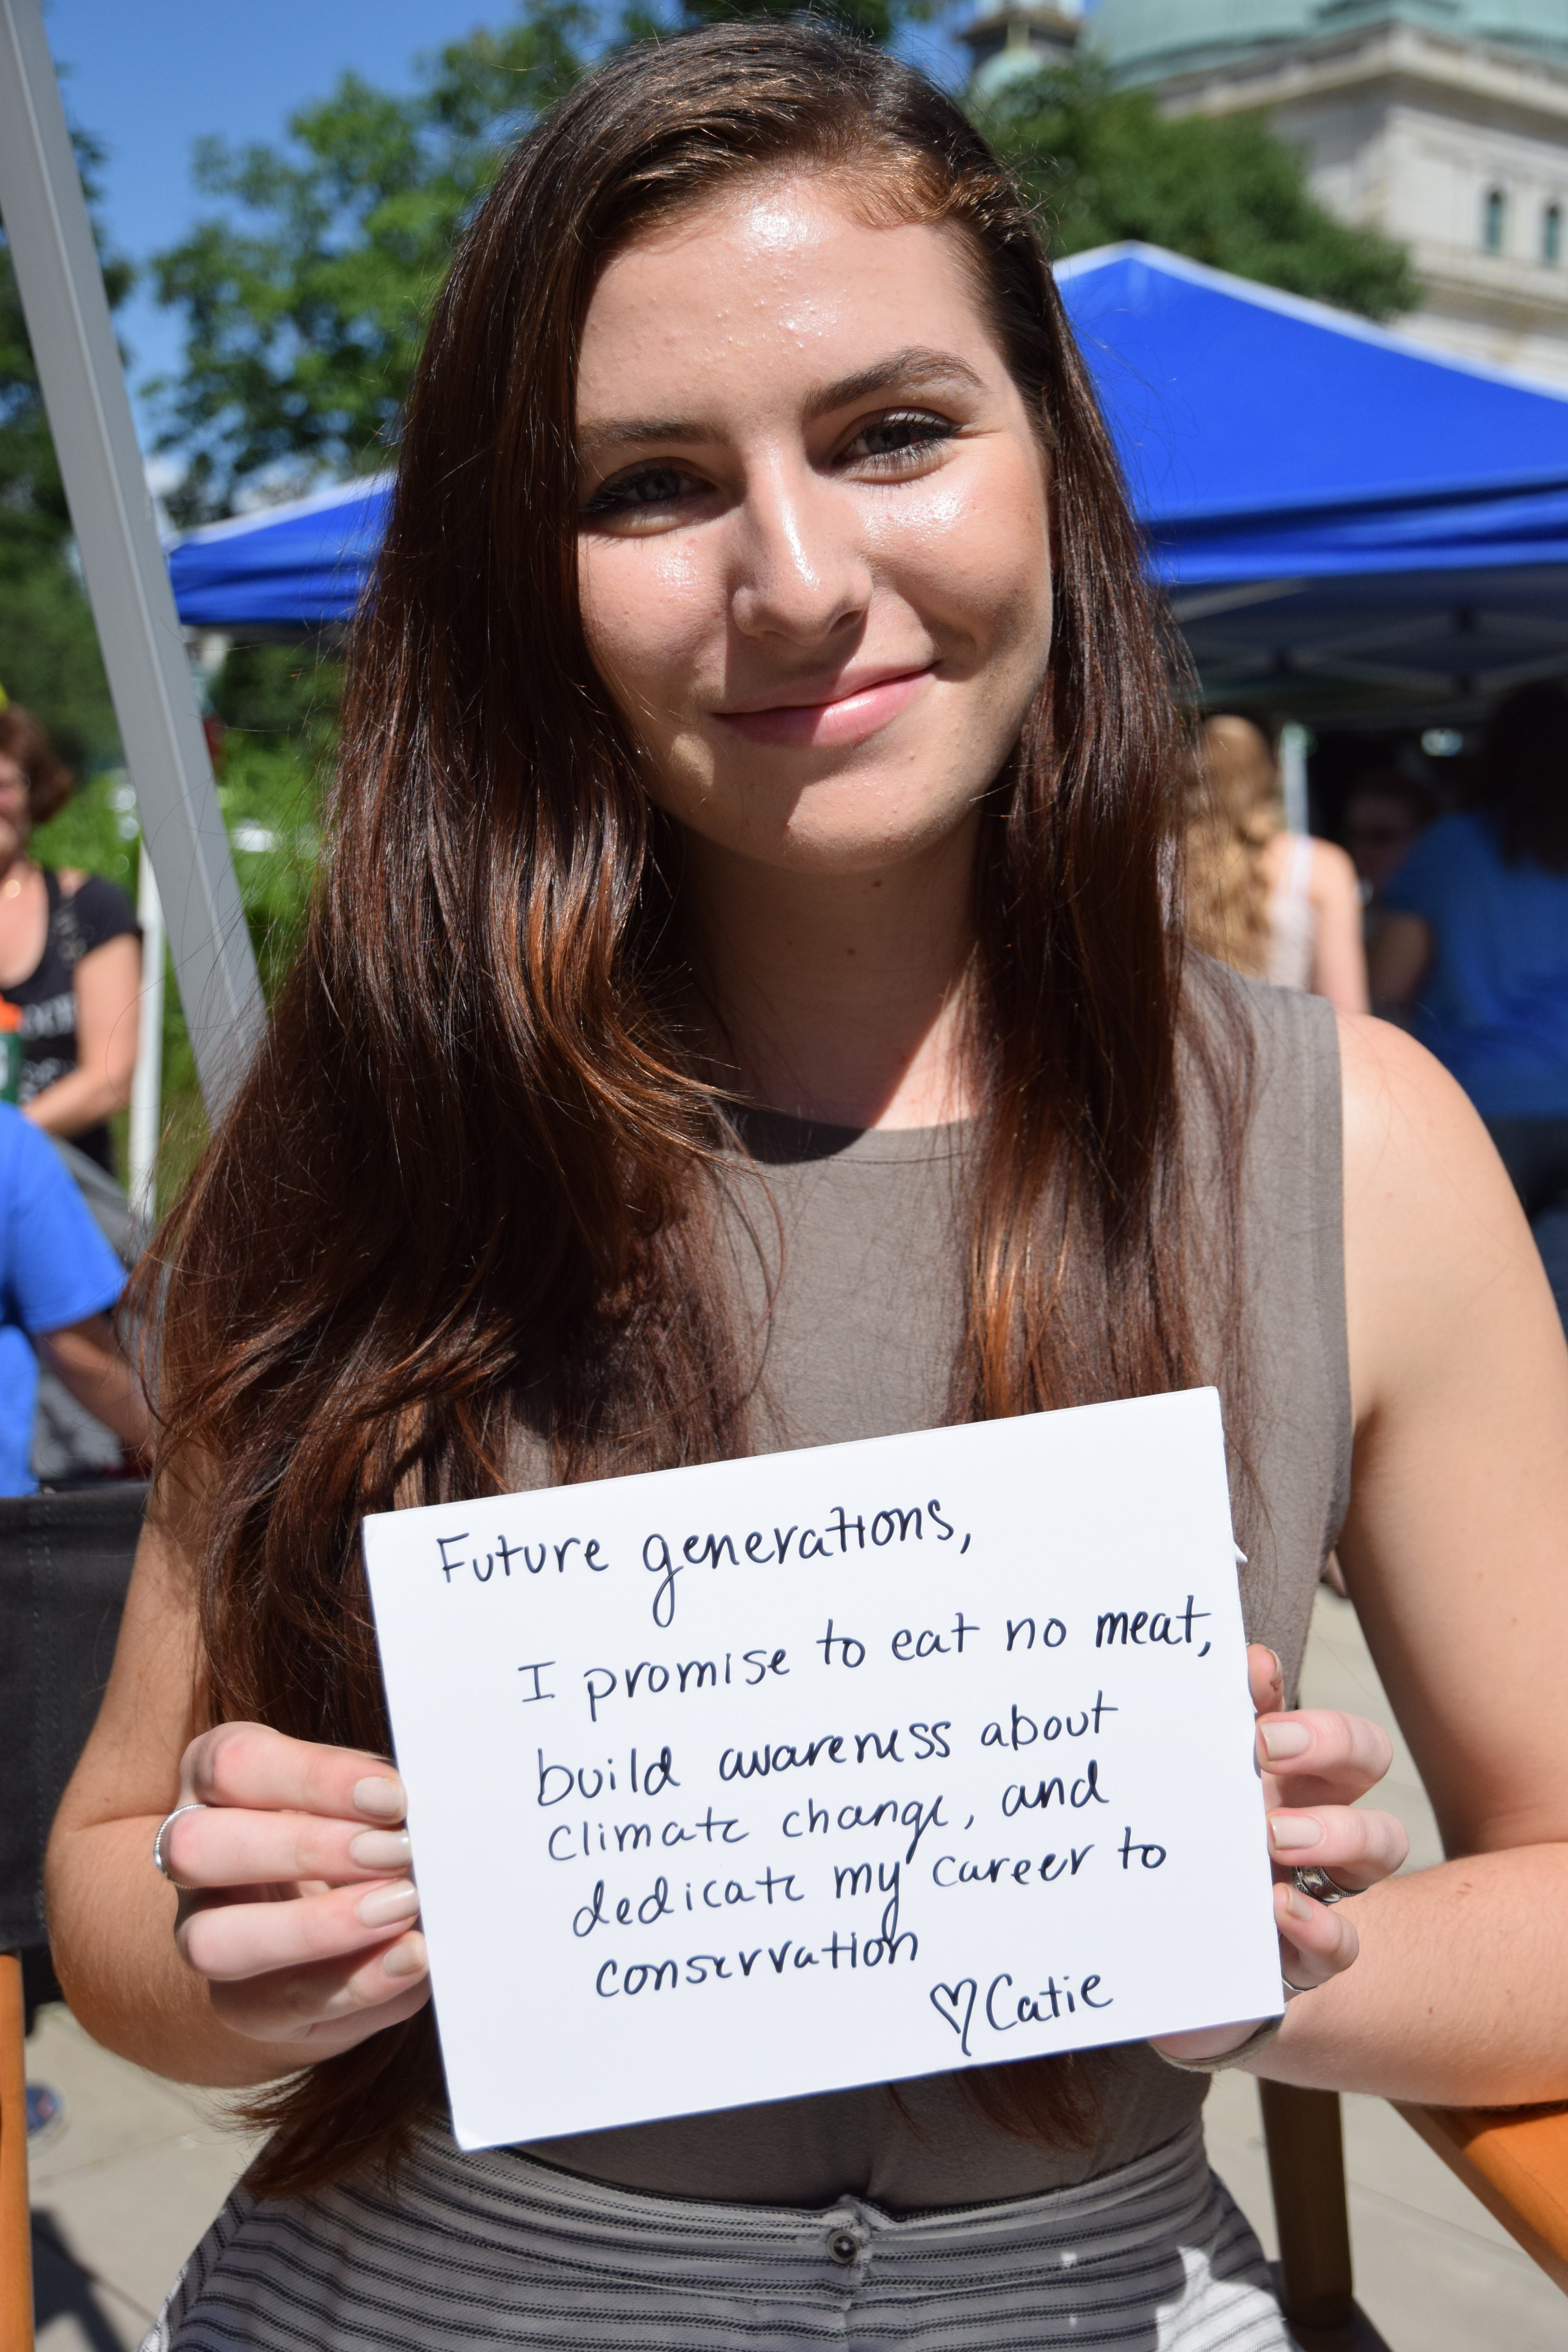 Future generations,
I promise to eat no meat,
build awareness about
climate change, and
dedicate my career to
conservation
♡Catie